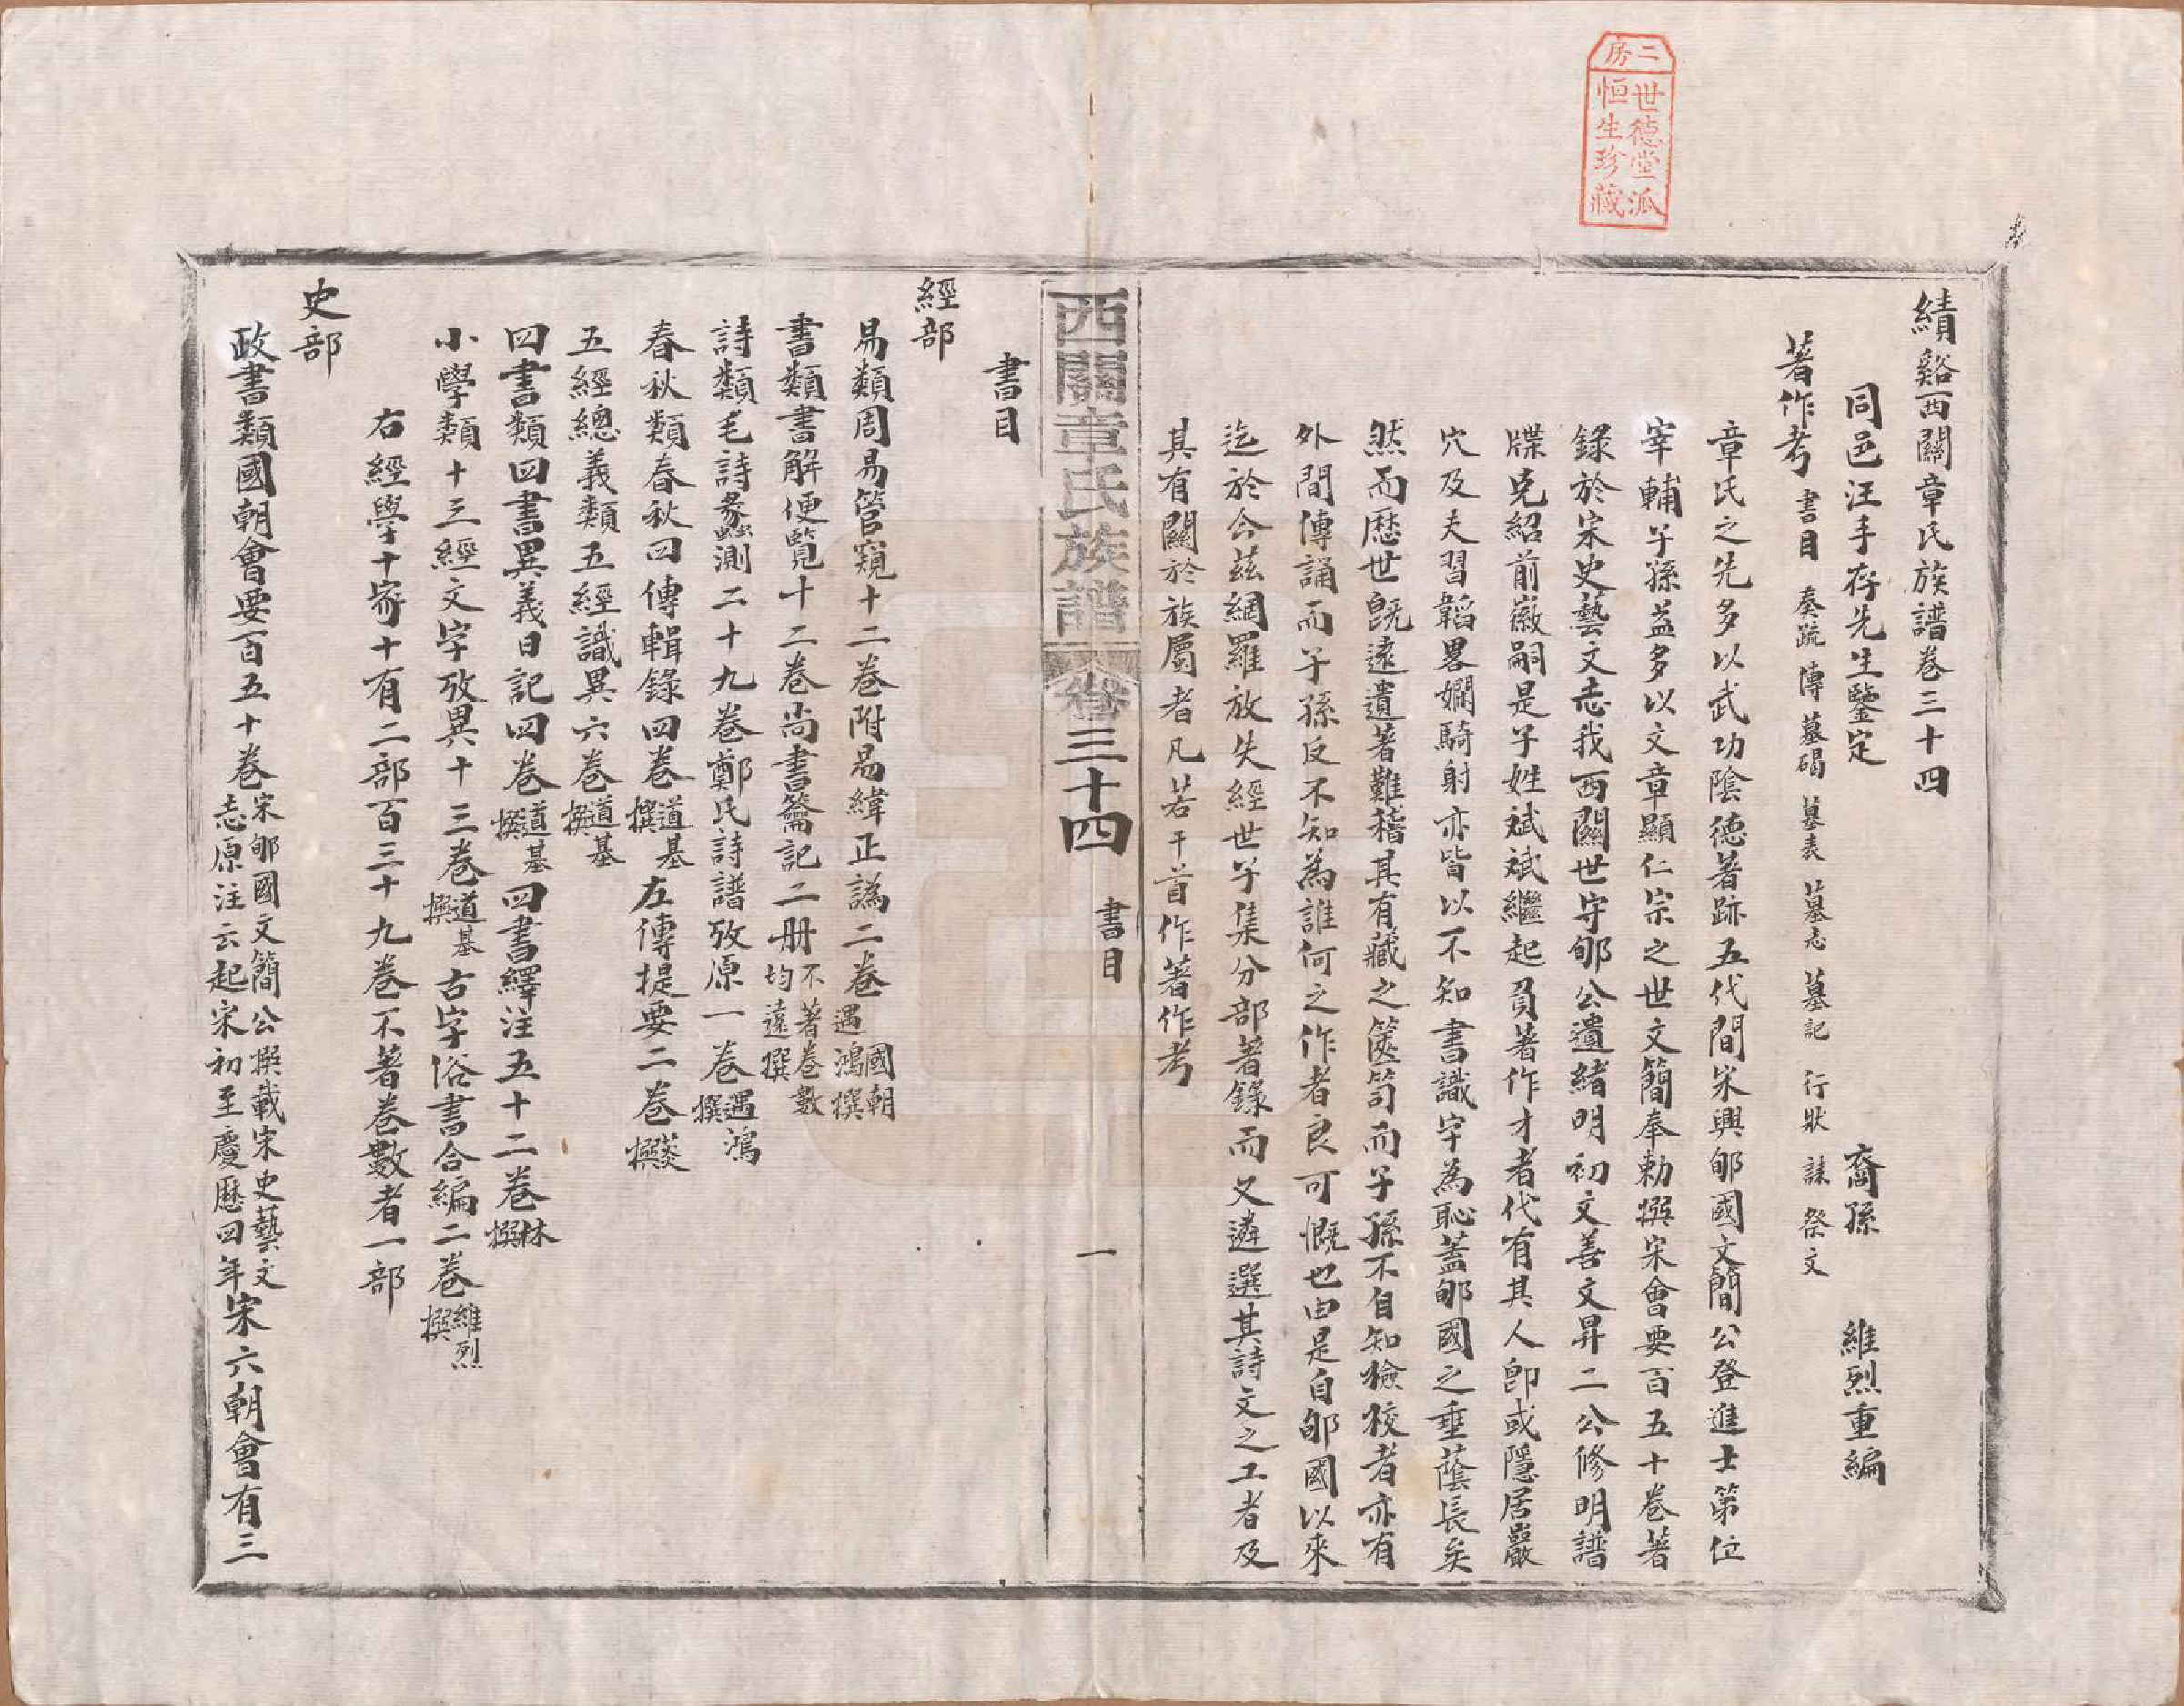 二房
世德堂派
恒生珍藏
績谿西關章氏族譜卷三十四
同邑汪手存先生鑒定 裔孫 維烈重編
著作考 書目 奏疏 傳 墓碣 墓表 墓志 墓記 行狀 誄 祭文
章氏之先多以武功陰德著跡五代間宋興郇國文簡公登進士第位
宰輔子孫益多以文章顯仁宗之世文簡奉勅撰宋會要百五十卷著
錄於宋史藝文志我西關世守郇公遺緒明初文善文昇二公修明譜
牒克紹前徽嗣是子姓斌斌繼起員著作才者代有其人卽或隱居巖
穴及夫習韜畧嫻騎射亦皆以不知書識字為恥蓋郇國之垂蔭長矣
然而歷世旣遠遺著難稽其有藏之篋笥而子孫不自知撿校者亦有
外間傳誦而子孫反不知為誰何之作者良可慨也由是自郇國以來
迄於今茲網羅放失經世子集分部著錄而又遴選其詩文之工者及
其有關於族屬者凡若干首作著作考
西關章氏族譜 卷三十四 書目 一
書目
經部
易類周易管窺十二卷附易緯正譌二卷國朝遇鴻撰
書類書解便覽十二卷尚書籥記二册不著卷數均遠撰
詩類毛詩蠡測二十九卷鄭氏詩譜攷原一卷遇鴻撰
春秋類春秋四傳輯錄四卷道基撰左傳提要二卷炎撰
五經總義類五經識異六卷道基撰
四書類四書異義日記四卷道基撰四書繹注五十二卷林撰
小學類十三經文字攷異十三卷道基撰古字俗書合編二卷維烈撰
右經學十家十有二部百三十九卷不著卷數者一部
史部
政書類國朝會要百五十卷宋郇國文簡公撰載宋史藝文志原注云起宋初至慶歷四年宋六朝會有三